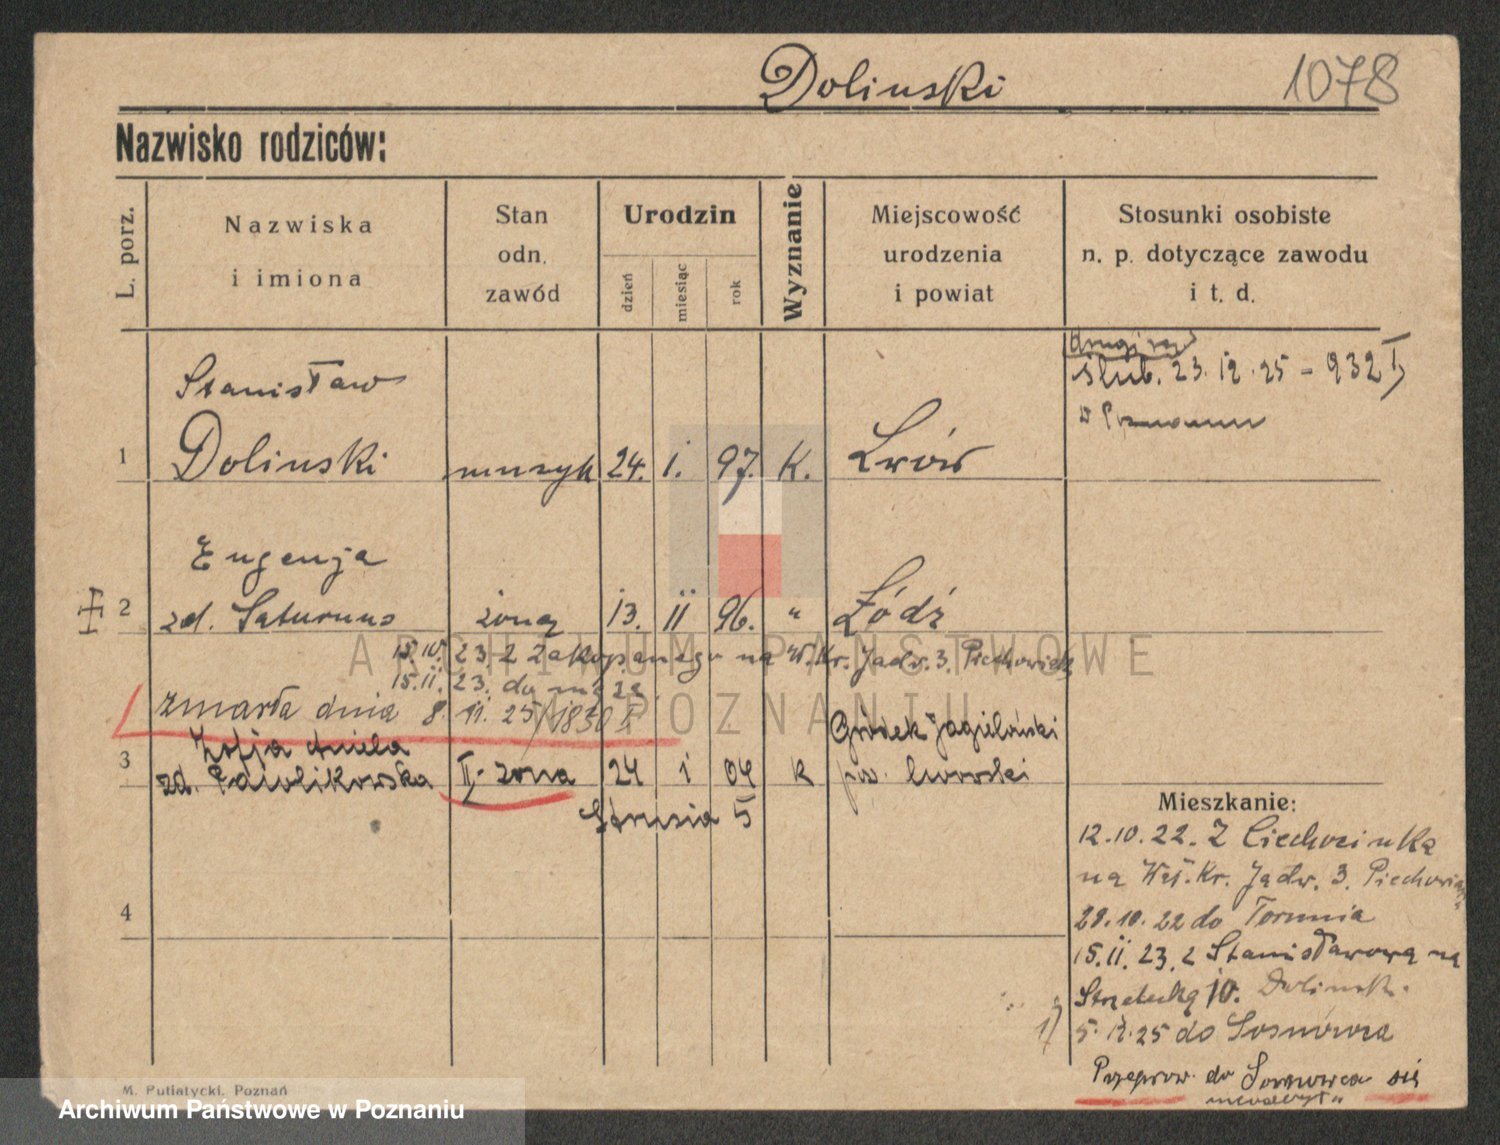 Dolinski
1078
Nazwisko rodziców:
L. porz.
Nazwiska
i imiona
Stan
odn.
zawód
Urodzin
dzień
miesiąc
rok
Wyznanie
Miejscowość
urodzenia
i powiat
Stosunki osobiste
n. p. dotyczące zawodu
i t. d.
drugi raz
ślub. 23.12.25 - 932 I
w Poznaniu
Stanisław
1 Dolinski muzyk 24. i. 97. K. Lwów
Eugenja
2 zd. Saturnus żona 13. ii 96. " Łódź
15.10. 23. z Zakopanego na W. Kr. Jadw. 3. Piechowiak
15.11. 23. do męża
zmarła dnia 8. 11. 25 /1830 I
Zofja Aniela
Gródek Jagieloński
3 zd. II. żona 24 i 04 k pow. lwowski
Strusia 5
4
Mieszkanie:
12.10.22. Z Ciechocinka
na Wał. Kr. Jadw. 3. Piechowiak
29.10.22 do Torunia
15.11.23. z Stanisławowa na
Strzelecką 10. Dolinsk.
5.12.25 do Sosnowca
Przeprow. do Sosnowca się
M. Putiatycki, Poznań
ARCHIWUM PAŃSTWOWE
W POZNANIU
Archiwum Państwowe w Poznaniu